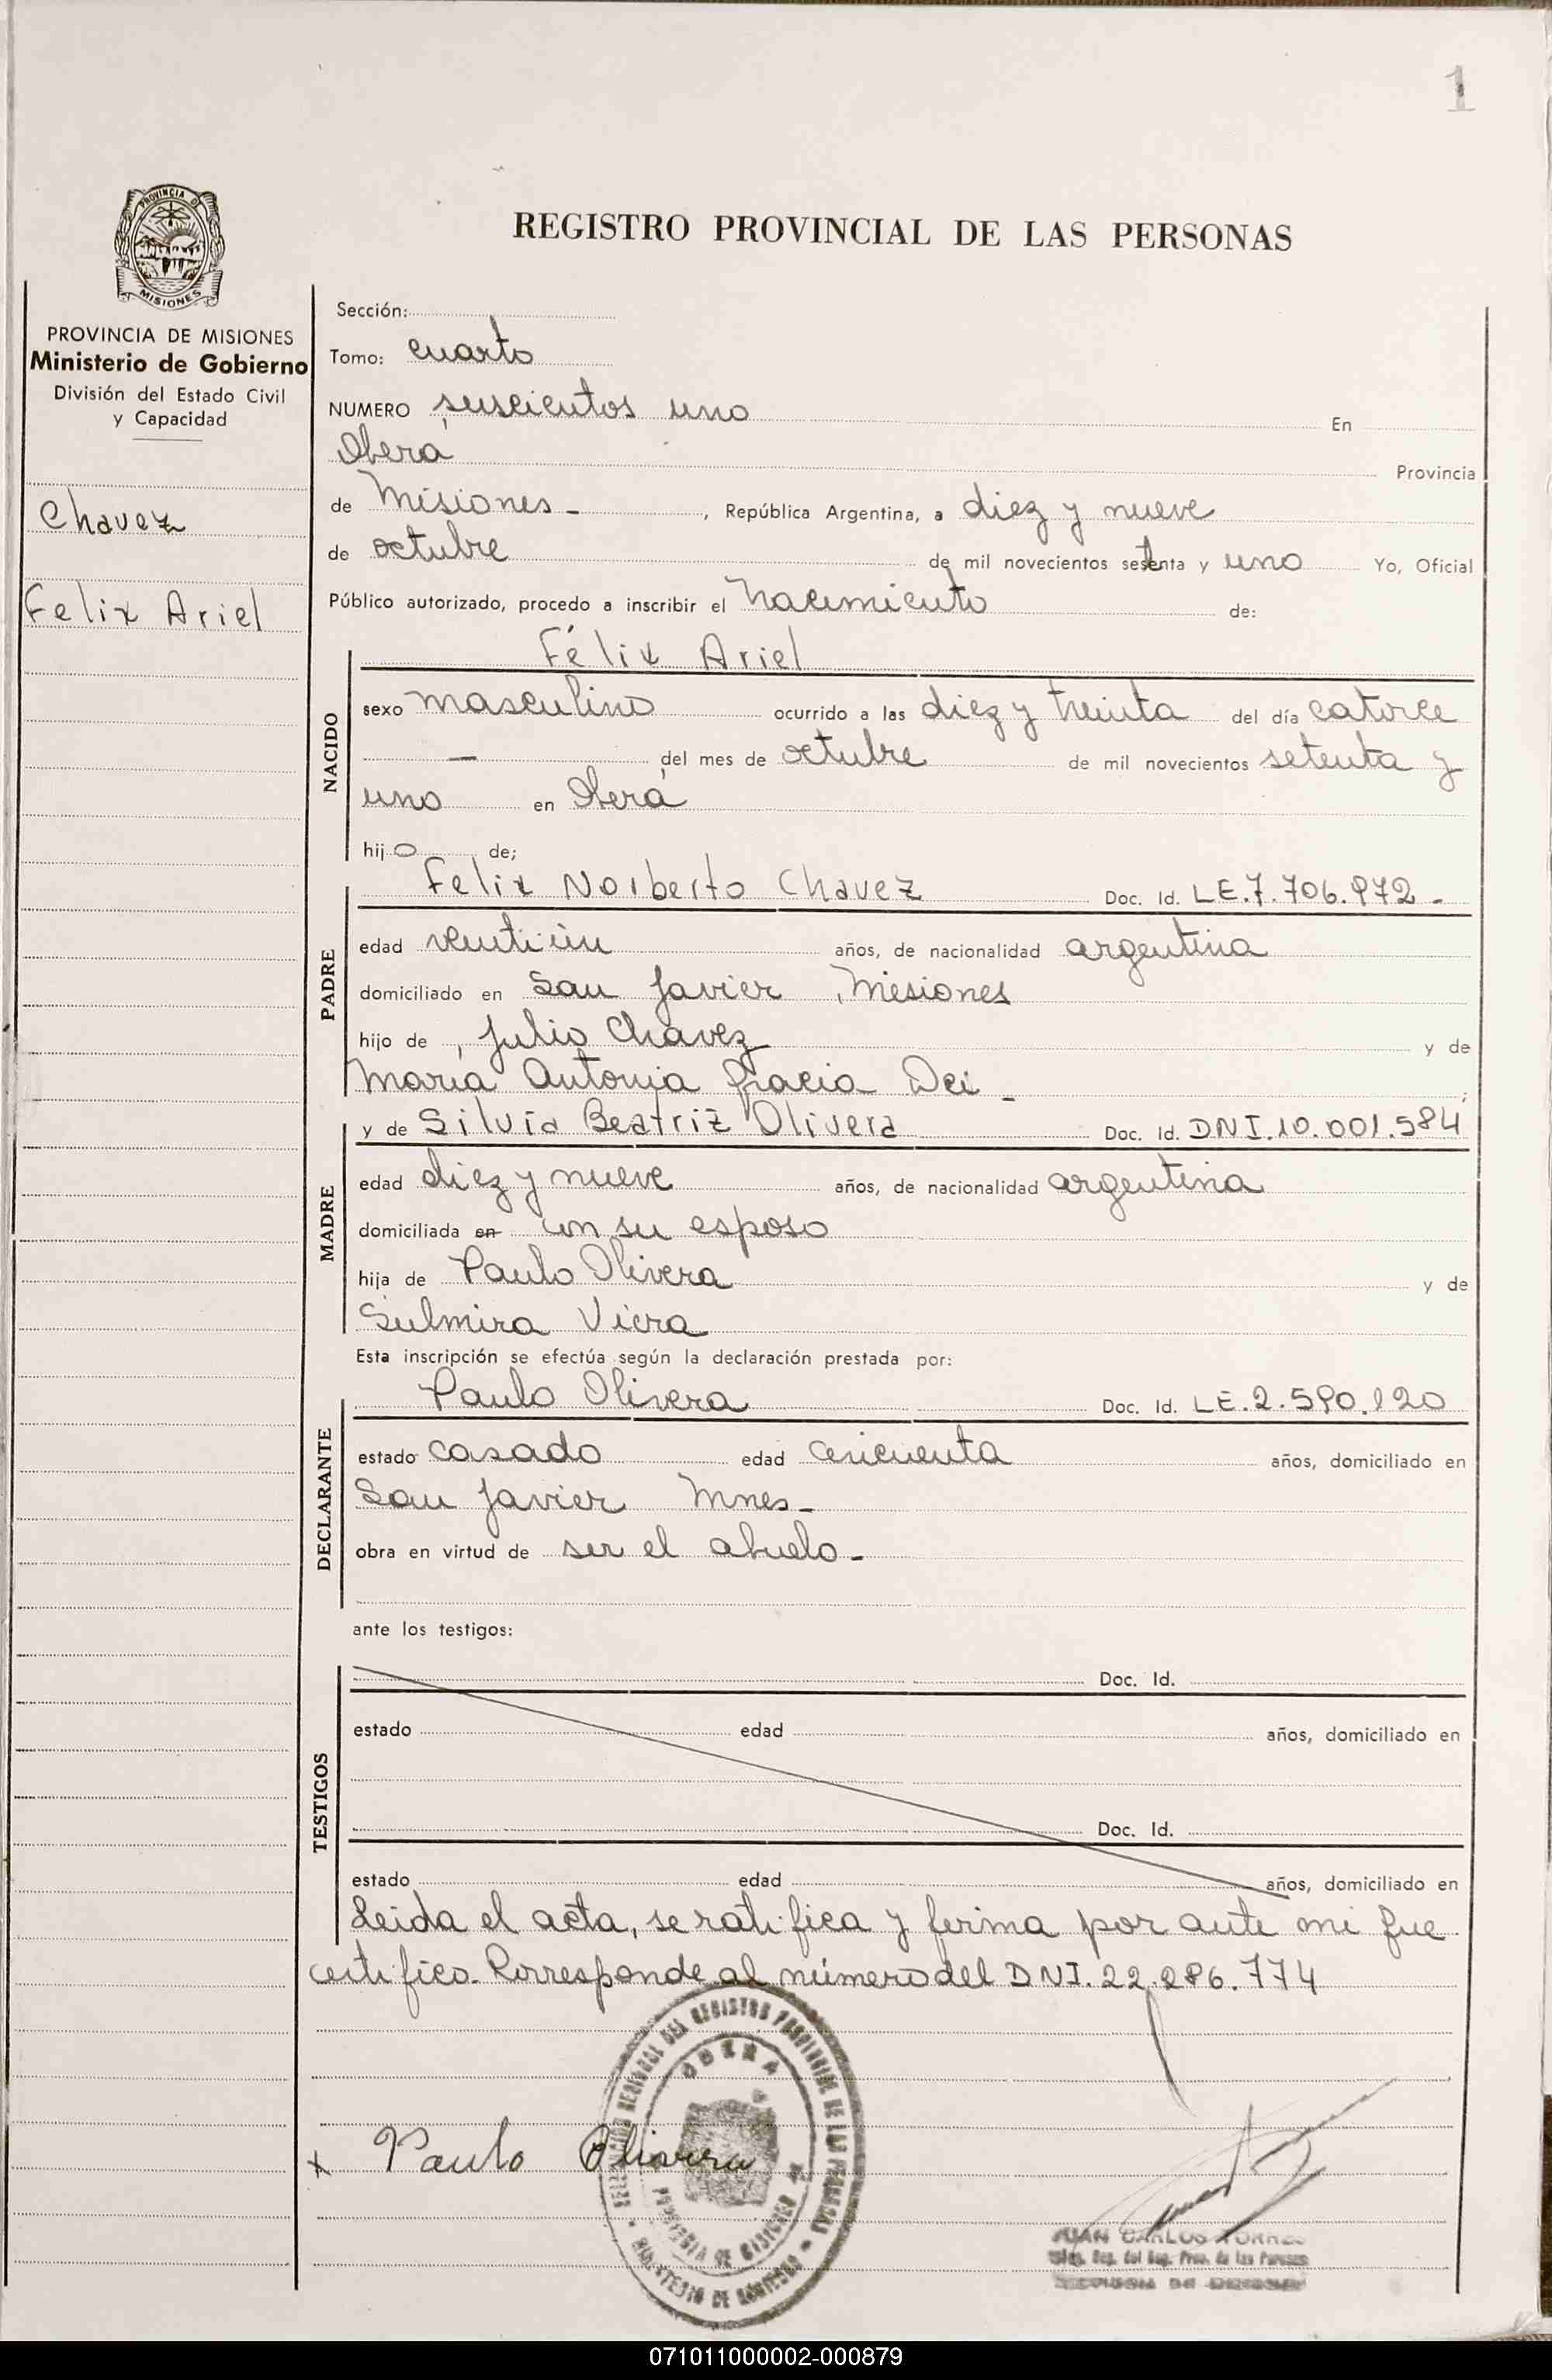 1
PROVINCIA DE
MISIONES
REGISTRO PROVINCIAL DE LAS PERSONAS
PROVINCIA DE MISIONES
Ministerio de Gobierno
División del Estado Civil
y Capacidad
Chavez
Felix Ariel
Sección:
Tomo: cuarto
NUMERO seiscientos uno En
Oberá Provincia
de Misiones - , República Argentina, a diez y nueve
de octubre de mil novecientos setenta y uno Yo, Oficial
Público autorizado, procedo a inscribir el nacimiento de:
Félix Ariel
NACIDO
sexo masculino ocurrido a las diez y treinta del día catorce
— del mes de octubre de mil novecientos setenta y
uno en Oberá
hijo de;
Felix Norberto Chavez Doc. Id. LE.7.706.972-
PADRE
edad veintiún años, de nacionalidad argentina
domiciliado en San Javier, Misiones
hijo de Julio Chavez y de
Maria Antonia Gracia Dei -
y de Silvia Beatriz Olivera Doc. Id. DNI.10.001.584
MADRE
edad diez y nueve años, de nacionalidad argentina
domiciliada en con su esposo
hija de Paulo Olivera y de
Sulmira Viera
Esta inscripción se efectúa según la declaración prestada por:
Paulo Olivera Doc. Id. LE.2.590.120
DECLARANTE
estado casado edad cincuenta años, domiciliado en
San Javier Mnes-
obra en virtud de ser el abuelo-
ante los testigos:
TESTIGOS
Doc. Id.
estado edad años, domiciliado en
Doc. Id.
estado edad años, domiciliado en
Leida el acta, se ratifica y firma por ante mi que
certifico. Corresponde al número del DNI. 22.286.774
OBERA
PROVINCIA DE MISIONES
MINISTERIO DE GOBIERNO
x Paulo Olivera
JUAN CARLOS TORRES
071011000002-000879